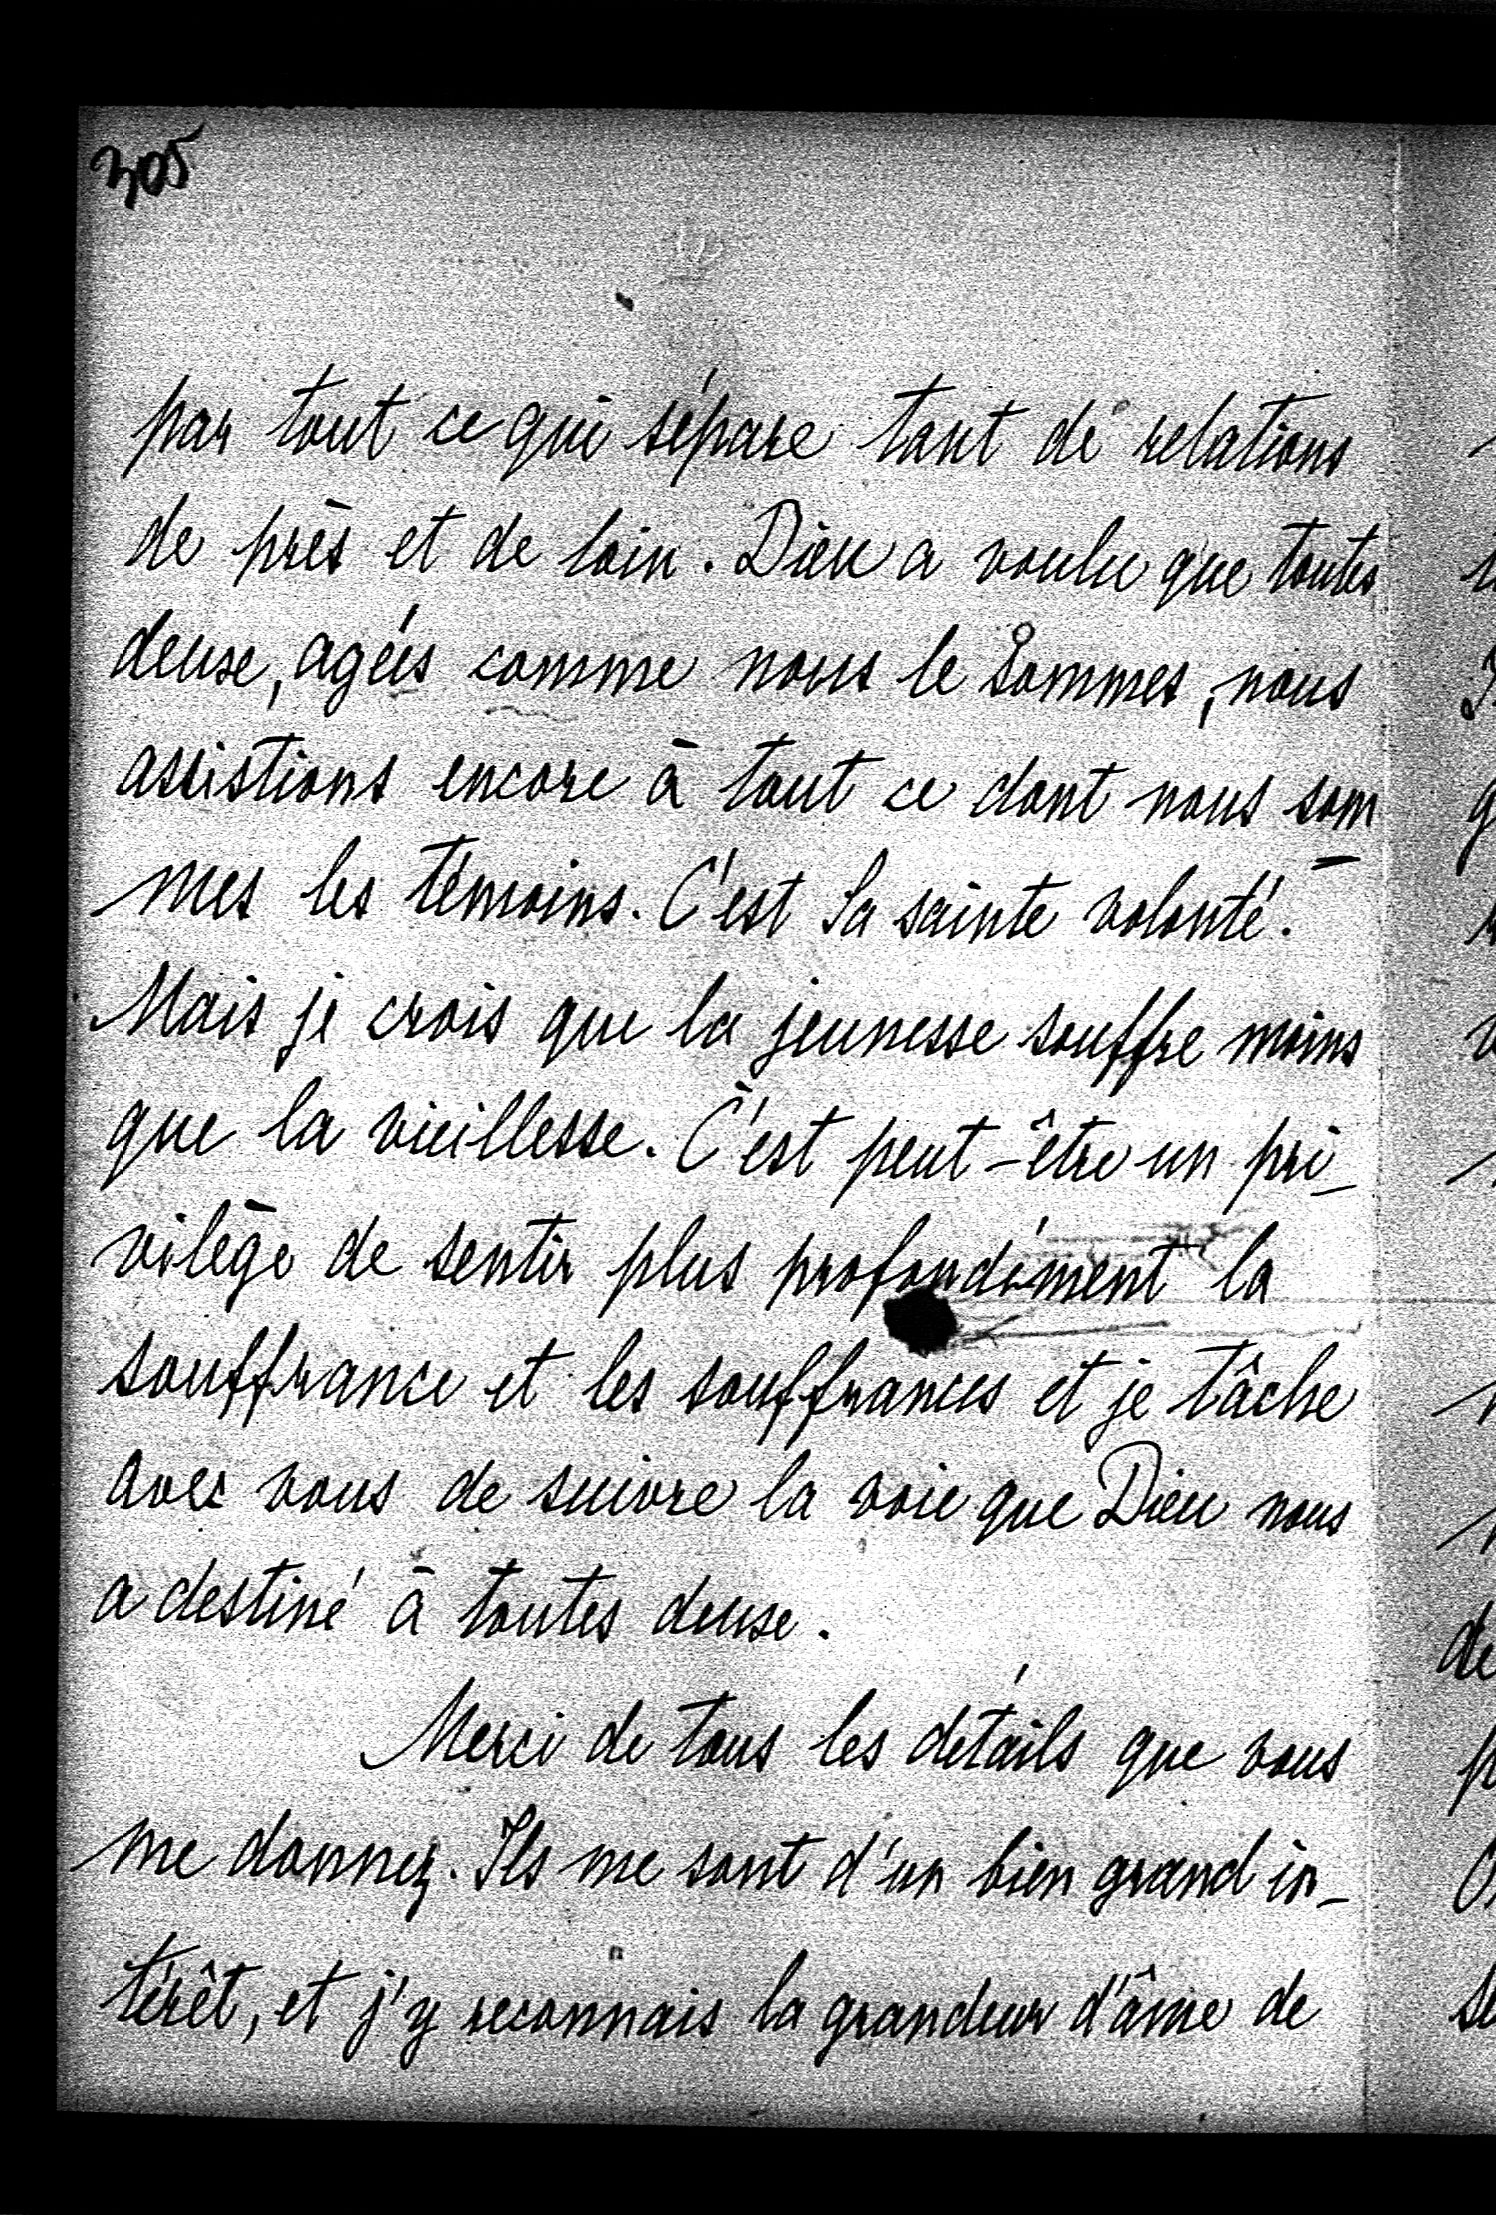 305
par tout ce qui sépare tant de relations
de près et de loin. Dieu a voulu que toutes
deux, agées comme nous le sommes, nous
assistions encore à tout ce dont nous som
mes les témoins. C'est Sa sainte volonté.
Mais je crois que la jeunesse souffre moins
que la vieillesse. C'est peut-être un pri-
vilège de sentir plus profondément la
souffrance et les souffrances et je tâche
avec vous de suivre la voie que Dieu nous
a destiné à toutes deux.
Merci de tous les détails que vous
me donnez. Ils me sont d'un bien grand in-
térêt, et j'y reconnais la grandeur d'âme de